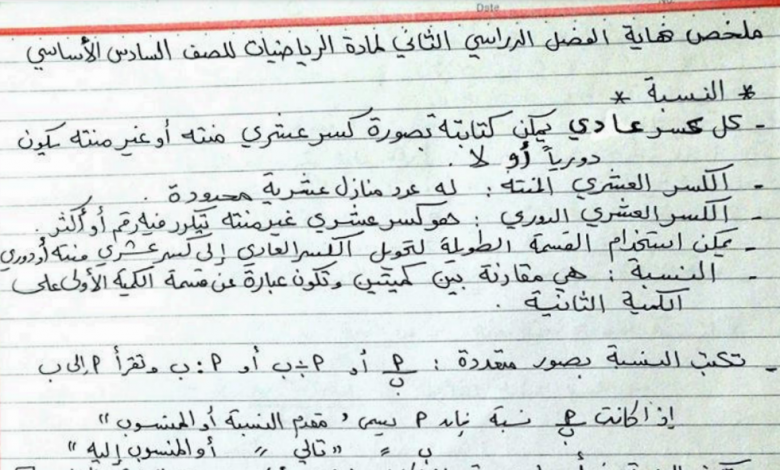 Date
ملخص نهاية الفصل الدراسي الثاني لمادة الرياضيات للصف السادس الأساسي
* النسبة *
- كل كسر عادي يمكن كتابتة بصورة كسر عشري منته أو غير منته يكون
دورياً أو لا .
- الكسر العشري المنته : له عدد منازل عشرية محدودة .
- الكسر العشري الدوري : هو كسر عشري غير منته يتكرر فيه رقم أو أكثر .
- يمكن استخدام القسمة الطويلة لتحويل الكسر العادي إلى كسر عشري منته أو دوري
- النسبة : هي مقارنة بين كميتين وتكون عبارة عن قسمة الكمية الأولى على
الكمية الثانية .
- تكتب النسبة بصور متعددة : أ/ب أو أ÷ب أو أ:ب وتقرأ أ إلى ب
إذا كانت أ/ب نسبة فإن أ يسمى "مقدم النسبة أو المنسوب"
ب = "تالي = أو المنسوب إليه"